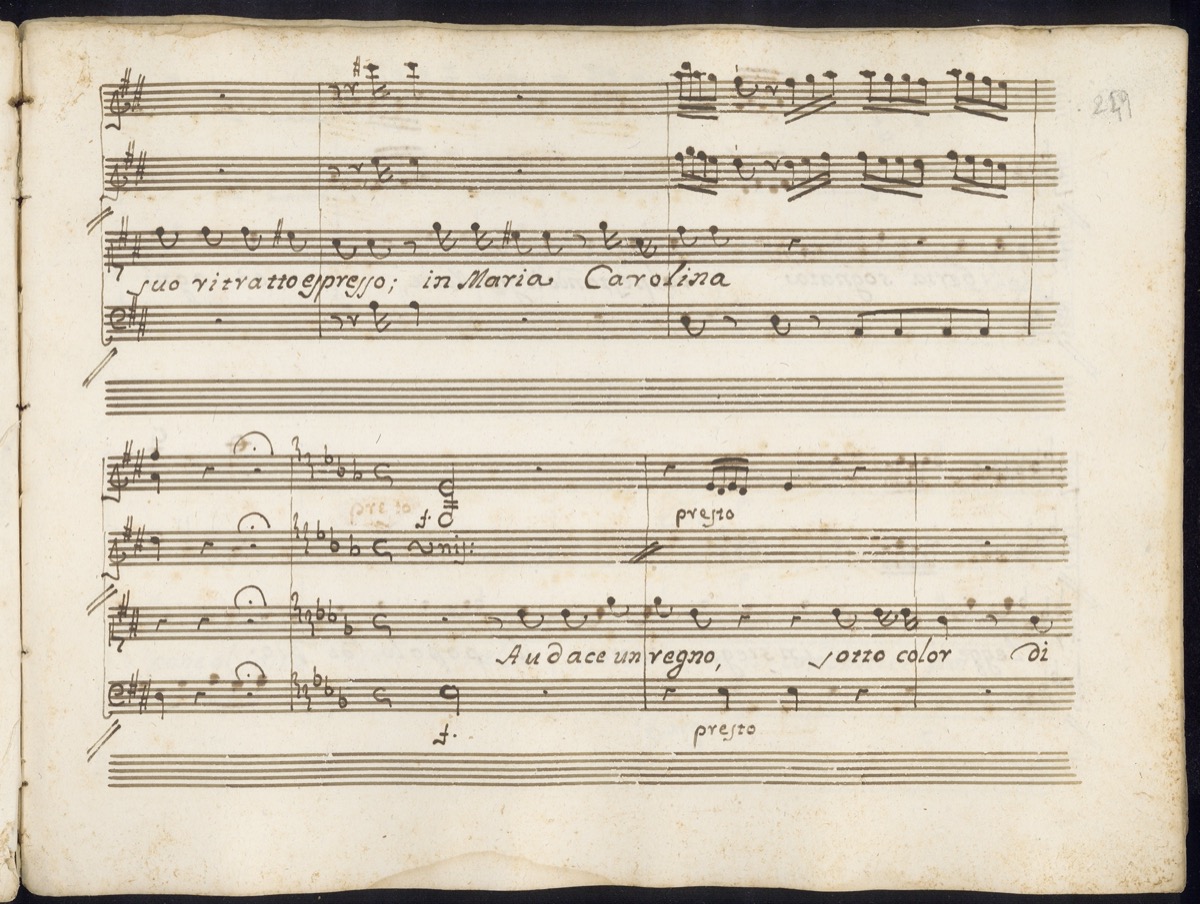 suo ritratto espresso; in Maria Carolina
f.
presto
unis:
Audace un regno, sotto color di
f.
presto